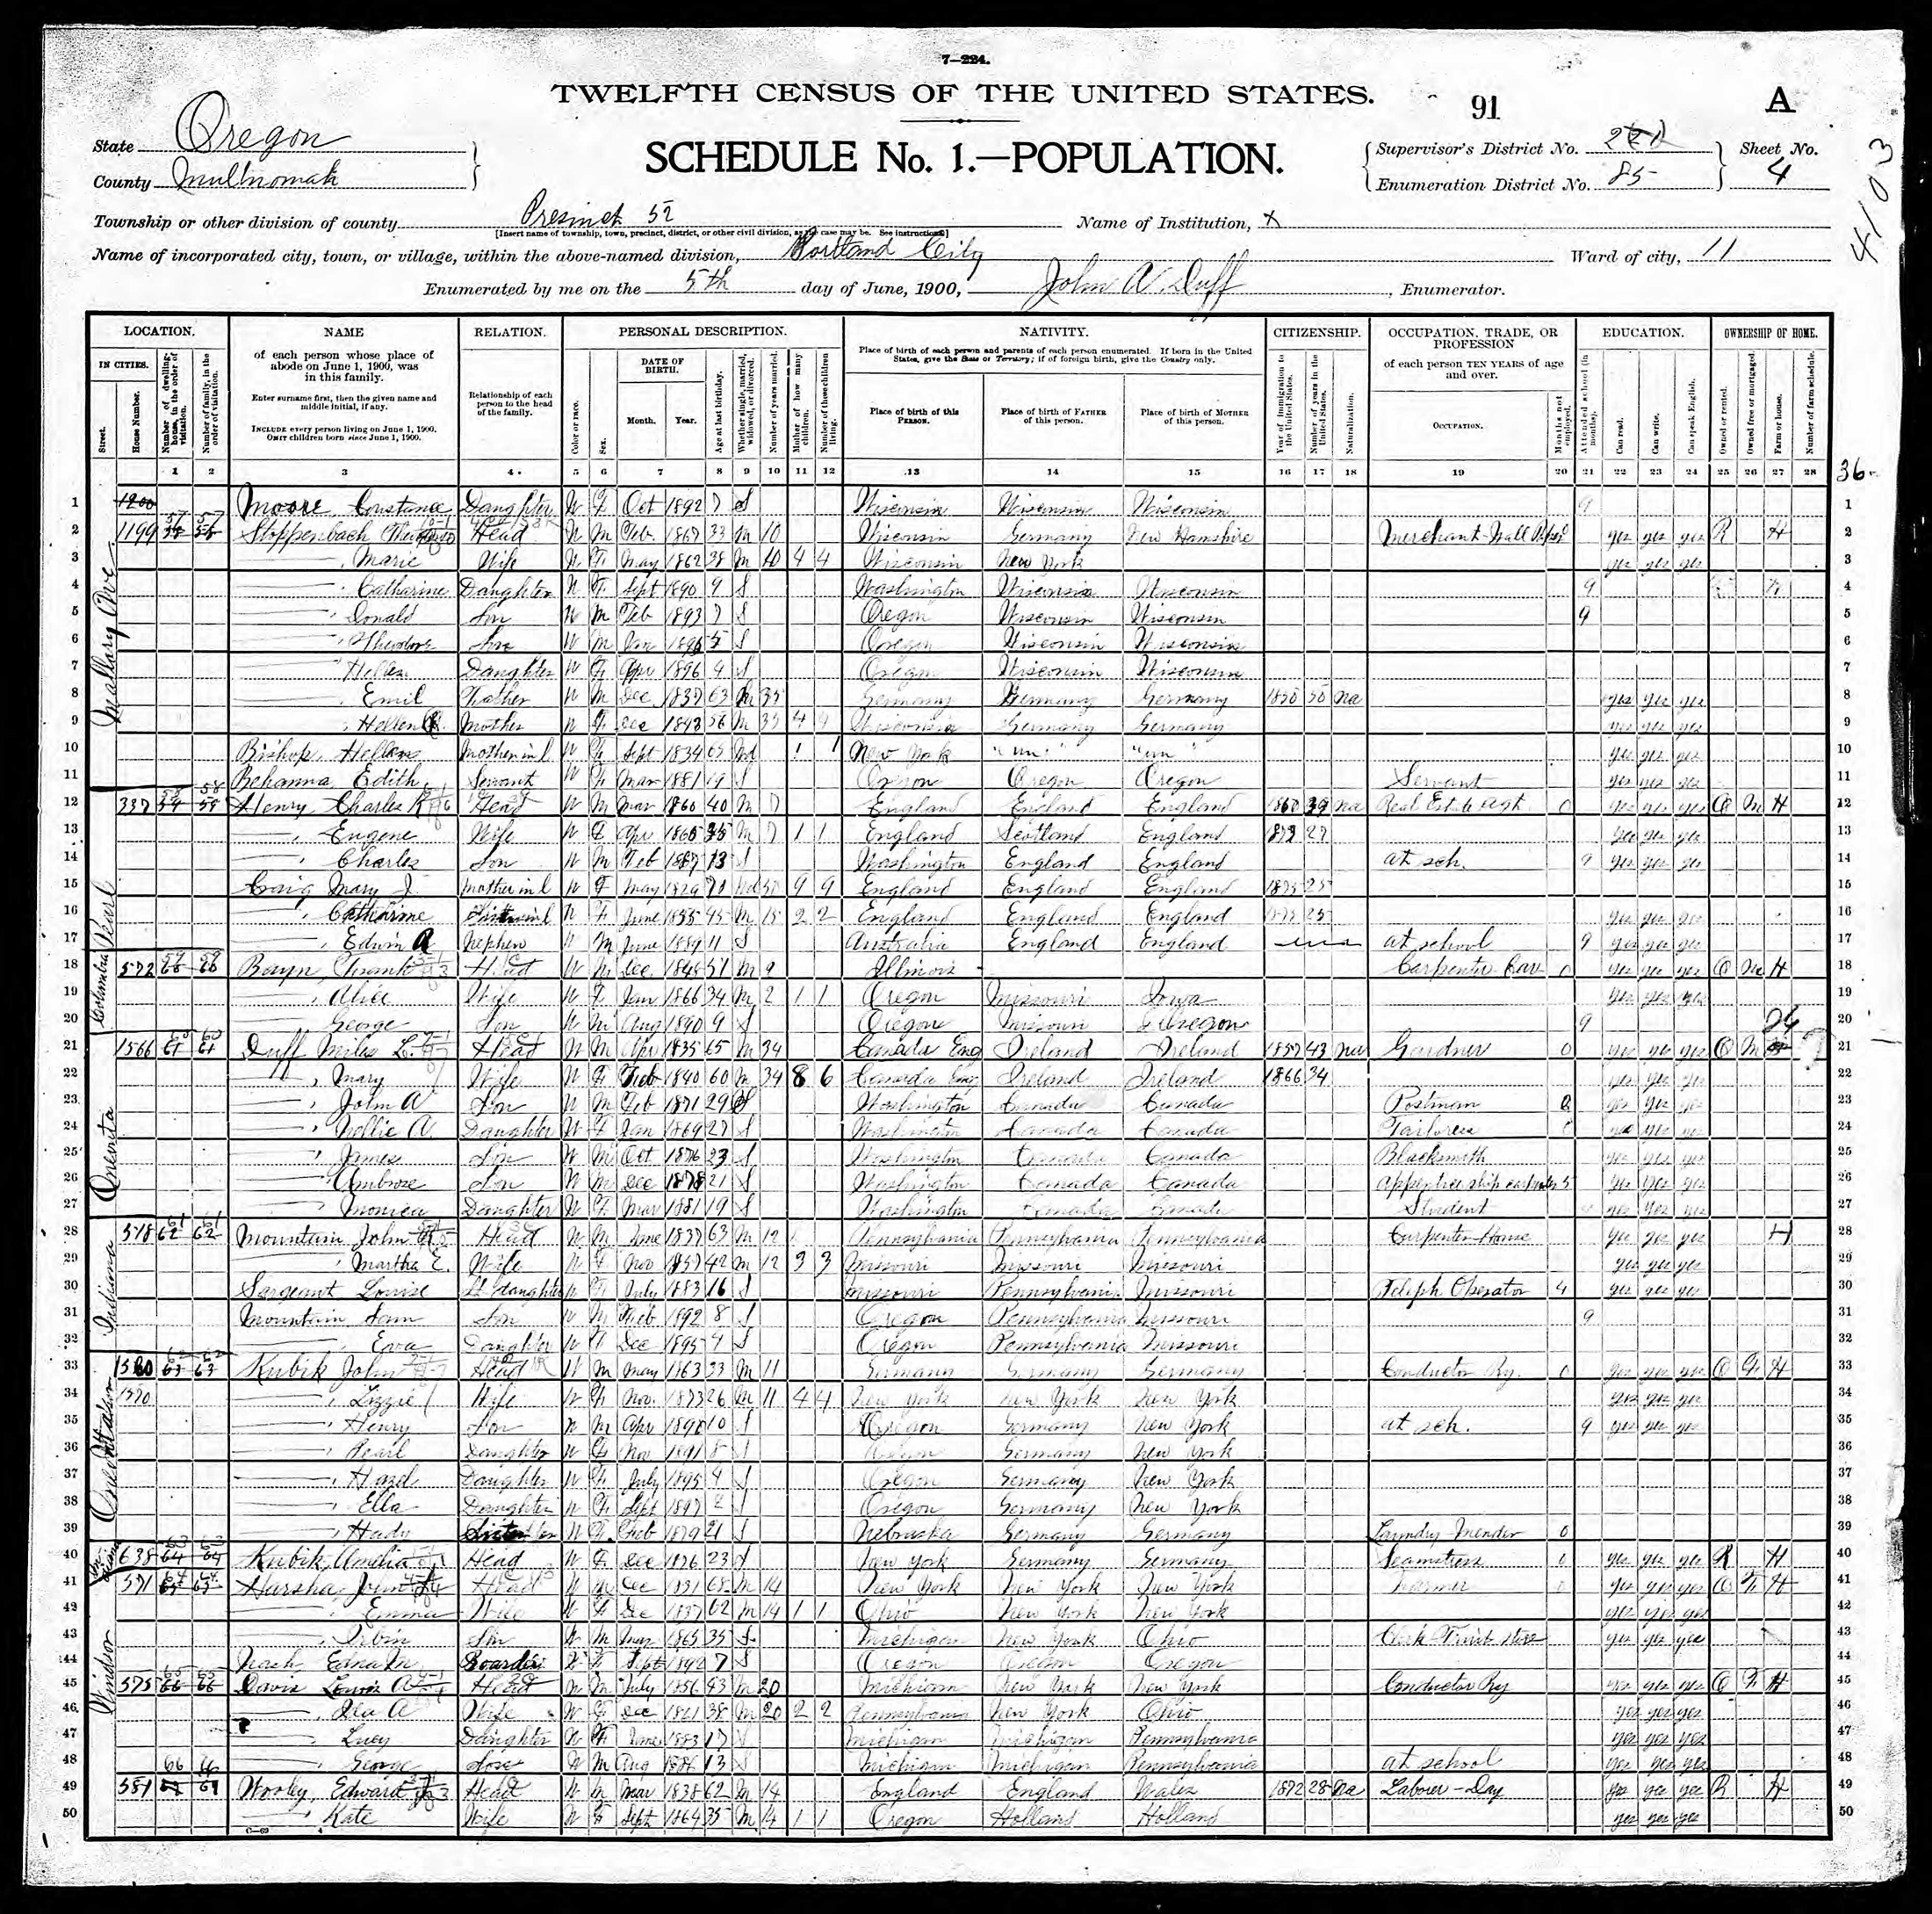 7—224.
TWELFTH CENSUS OF THE UNITED STATES.
91
A
SCHEDULE No. 1.—POPULATION.
State Oregon
County Multnomah
Supervisor's District No.
Enumeration District No. 85
Sheet No. 4
4103
Township or other division of county Presinct 52
[Insert name of township, town, precinct, district, or other civil division, as the case may be. See instructions.]
Name of Institution, x
Name of incorporated city, town, or village, within the above-named division, Portland City
Ward of city, 11
Enumerated by me on the 5th day of June, 1900, John A. Duff, Enumerator.
LOCATION. NAME RELATION. PERSONAL DESCRIPTION. NATIVITY. CITIZENSHIP. OCCUPATION, TRADE, OR PROFESSION EDUCATION. OWNERSHIP OF HOME.
IN CITIES.
Street.
House Number.
Number of dwelling-house, in the order of visitation.
Number of family, in the order of visitation.
of each person whose place of abode on June 1, 1900, was in this family.
Enter surname first, then the given name and middle initial, if any.
INCLUDE every person living on June 1, 1900.
OMIT children born since June 1, 1900.
Relationship of each person to the head of the family.
Color or race.
Sex.
DATE OF BIRTH.
Month. Year.
Age at last birthday.
Whether single, married, widowed, or divorced.
Number of years married.
Mother of how many children.
Number of these children living.
Place of birth of each person and parents of each person enumerated. If born in the United States, give the State or Territory; if of foreign birth, give the Country only.
Place of birth of this PERSON.
Place of birth of FATHER of this person.
Place of birth of MOTHER of this person.
Year of immigration to the United States.
Number of years in the United States.
Naturalization.
of each person TEN YEARS of age and over.
OCCUPATION.
Months not employed.
Attended school (in months).
Can read.
Can write.
Can speak English.
Owned or rented.
Owned free or mortgaged.
Farm or house.
Number of farm schedule.
1 2 3 4 5 6 7 8 9 10 11 12 13 14 15 16 17 18 19 20 21 22 23 24 25 26 27 28
36
Mallary Ave
1 1200 Moore Daughter W F Oct 1892 7 S Wisconsin Wisconsin Wisconsin 9 1
2 1199 57 57 Stoppenbach Head W M Feb 1867 33 M 10 Wisconsin Germany New Hamshire Merchant Wall Paper yes yes yes R H 2
3 Marie Wife W F May 1862 38 M 10 4 4 Wisconsin New York yes yes yes 3
4 Catharine Daughter W F Sept 1890 9 S Washington Wisconsin Wisconsin 9 4
5 Donald Son W M Feb 1893 7 S Oregon Wisconsin Wisconsin 9 5
6 Theodore Son W M Jan 1895 5 S Oregon Wisconsin Wisconsin 6
7 Hellen Daughter W F Apr 1896 4 S Oregon Wisconsin Wisconsin 7
8 Emil Father W M Dec 1837 63 M 35 Germany Germany Germany 1850 50 na yes yes yes 8
9 Hellen Mother W F Dec 56 M 35 4 Wisconsin Germany Germany yes yes yes 9
10 Bishop Mother in l W F Sept 1834 65 Wd 1 1 New York "un" "un" yes yes yes 10
11 Behanna, Edith Servant W F Mar 1881 19 S Oregon Oregon Oregon Servant yes yes yes 11
12 337 58 58 Henry Charles K Head W M Mar 1860 40 M 7 England England England 1860 39 na Real Estate Agt 0 yes yes yes O M H 12
13 Eugene Wife W F Apr 1865 35 M 7 1 1 England Scotland England 1873 27 yes yes yes 13
14 Charles Son W M Feb 1887 13 S Washington England England at sch. 9 yes yes yes 14
Columbia Pearl
15 Craig Mary J. Mother in l W F May 1829 Wd 9 9 England England England 1875 25 15
16 Catharine W F June 1855 45 M 15 2 2 England England England 25 yes yes yes 16
17 Edwin R Nephew W M June 1889 11 S Australia England England at school 9 yes yes yes 17
18 572 59 Frank Head W M Dec 1848 51 M 9 Illinois Carpenter 0 yes yes yes O M H 18
19 Alice Wife W F Jan 1866 34 M 2 1 1 Oregon Missouri Iowa yes yes yes 19
20 George Son W M Aug 1890 9 S Oregon Missouri Oregon 9 20
Oneonta
21 1566 60 60 Duff Miles L. Head W M Apr 1835 65 M 34 Canada Eng Ireland Ireland 1857 43 na Gardner 0 yes yes yes O M 21
22 Mary Wife W F Feb 1840 60 M 34 8 6 Canada Eng Ireland Ireland 1866 34 yes yes yes 22
23 John A Son W M Feb 1871 29 S Washington Canada Canada Postman yes yes yes 23
24 Nellie A. Daughter W F Jan 27 S Washington Canada Canada Tailoress yes yes yes 24
25 James Son W M Oct 1876 23 S Washington Canada Canada Blacksmith yes yes yes 25
26 Ambrose Son W M Dec 1878 21 S Washington Canada Canada yes yes yes 26
27 Monica Daughter W F Mar 1881 19 S Washington Canada Canada Student yes yes yes 27
Indiana
28 578 61 61 Mountain John Head W M June 1837 63 M 12 Pennsylvania Pennsylvania Pennsylvania Carpenter House yes yes yes H 28
29 Martha E. Wife W F Nov 1857 42 M 12 3 3 Missouri Missouri Missouri yes yes yes 29
30 Sargeant Louise St Daughter W F July 1883 16 S Missouri Pennsylvania Missouri Teleph Operator 4 yes yes yes 30
31 Mountain Sam Son W M Feb 1892 8 S Oregon Pennsylvania Missouri 9 31
32 Eva Daughter W F Dec 1895 4 S Oregon Pennsylvania Missouri 32
33 62 62 Kubik John Head W M May 1863 33 M 11 Germany Germany Germany Conductor Ry. 0 yes yes yes O F H 33
34 1570 Lizzie Wife W F Nov. 1873 26 M 11 4 4 New York New York New York yes yes yes 34
35 Henry Son W M Apr 1890 10 S Oregon Germany New York at sch. 9 yes yes yes 35
36 Pearl Daughter W F Nov 1891 8 S Oregon Germany New York 36
37 Hazel Daughter W F July 1895 4 S Oregon Germany New York 37
38 Ella Daughter W F Sept 1897 2 S Oregon Germany New York 38
39 Hedy W F Feb 1879 21 S Nebraska Germany Germany Laundry Mender 0 39
40 638 63 63 Kubik, Amelia Head W F Dec 1876 23 S New York Germany Germany Seamstress yes yes yes R H 40
Windsor
41 571 64 64 Harsha, John Head W M Dec 1831 68 M 14 New York New York New York Farmer yes yes yes O F H 41
42 Emma Wife W F Dec 1837 62 M 14 1 1 Ohio New York New York yes yes yes 42
43 Orbin Son W M Mar 1865 35 S Michigan New York Ohio Clerk Fruit Store yes yes yes 43
44 Nash, Edna M. Boarder W F Sept 1892 7 S Oregon Oregon Oregon 44
45 575 65 65 Davis Lewis A Head W M July 1856 43 M 20 Michigan New York New York Conductor Ry yes yes yes O F H 45
46 Wife W F Dec 1861 38 M 20 2 2 Pennsylvania New York Ohio yes yes yes 46
47 Lucy Daughter W F June 1883 17 S Michigan Michigan Pennsylvania yes yes yes 47
48 George Son W M Aug 1886 13 S Michigan Michigan Pennsylvania at school yes yes yes 48
49 581 66 66 Worley, Edward Head W M Mar 1838 62 M 14 England England Wales 1872 28 na Labour - Day yes yes yes R H 49
50 Kate Wife W F Sept 1864 35 M 14 1 1 Oregon Holland Holland yes yes yes 50